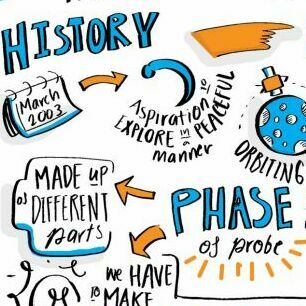 HISTORY
March
2003
Aspiration to
EXPLORE in a PEACEFUL
manner
ORBITING
MADE up
of DIFFERENT
parts
PHASE
of probe
we HAVE
to MAKE